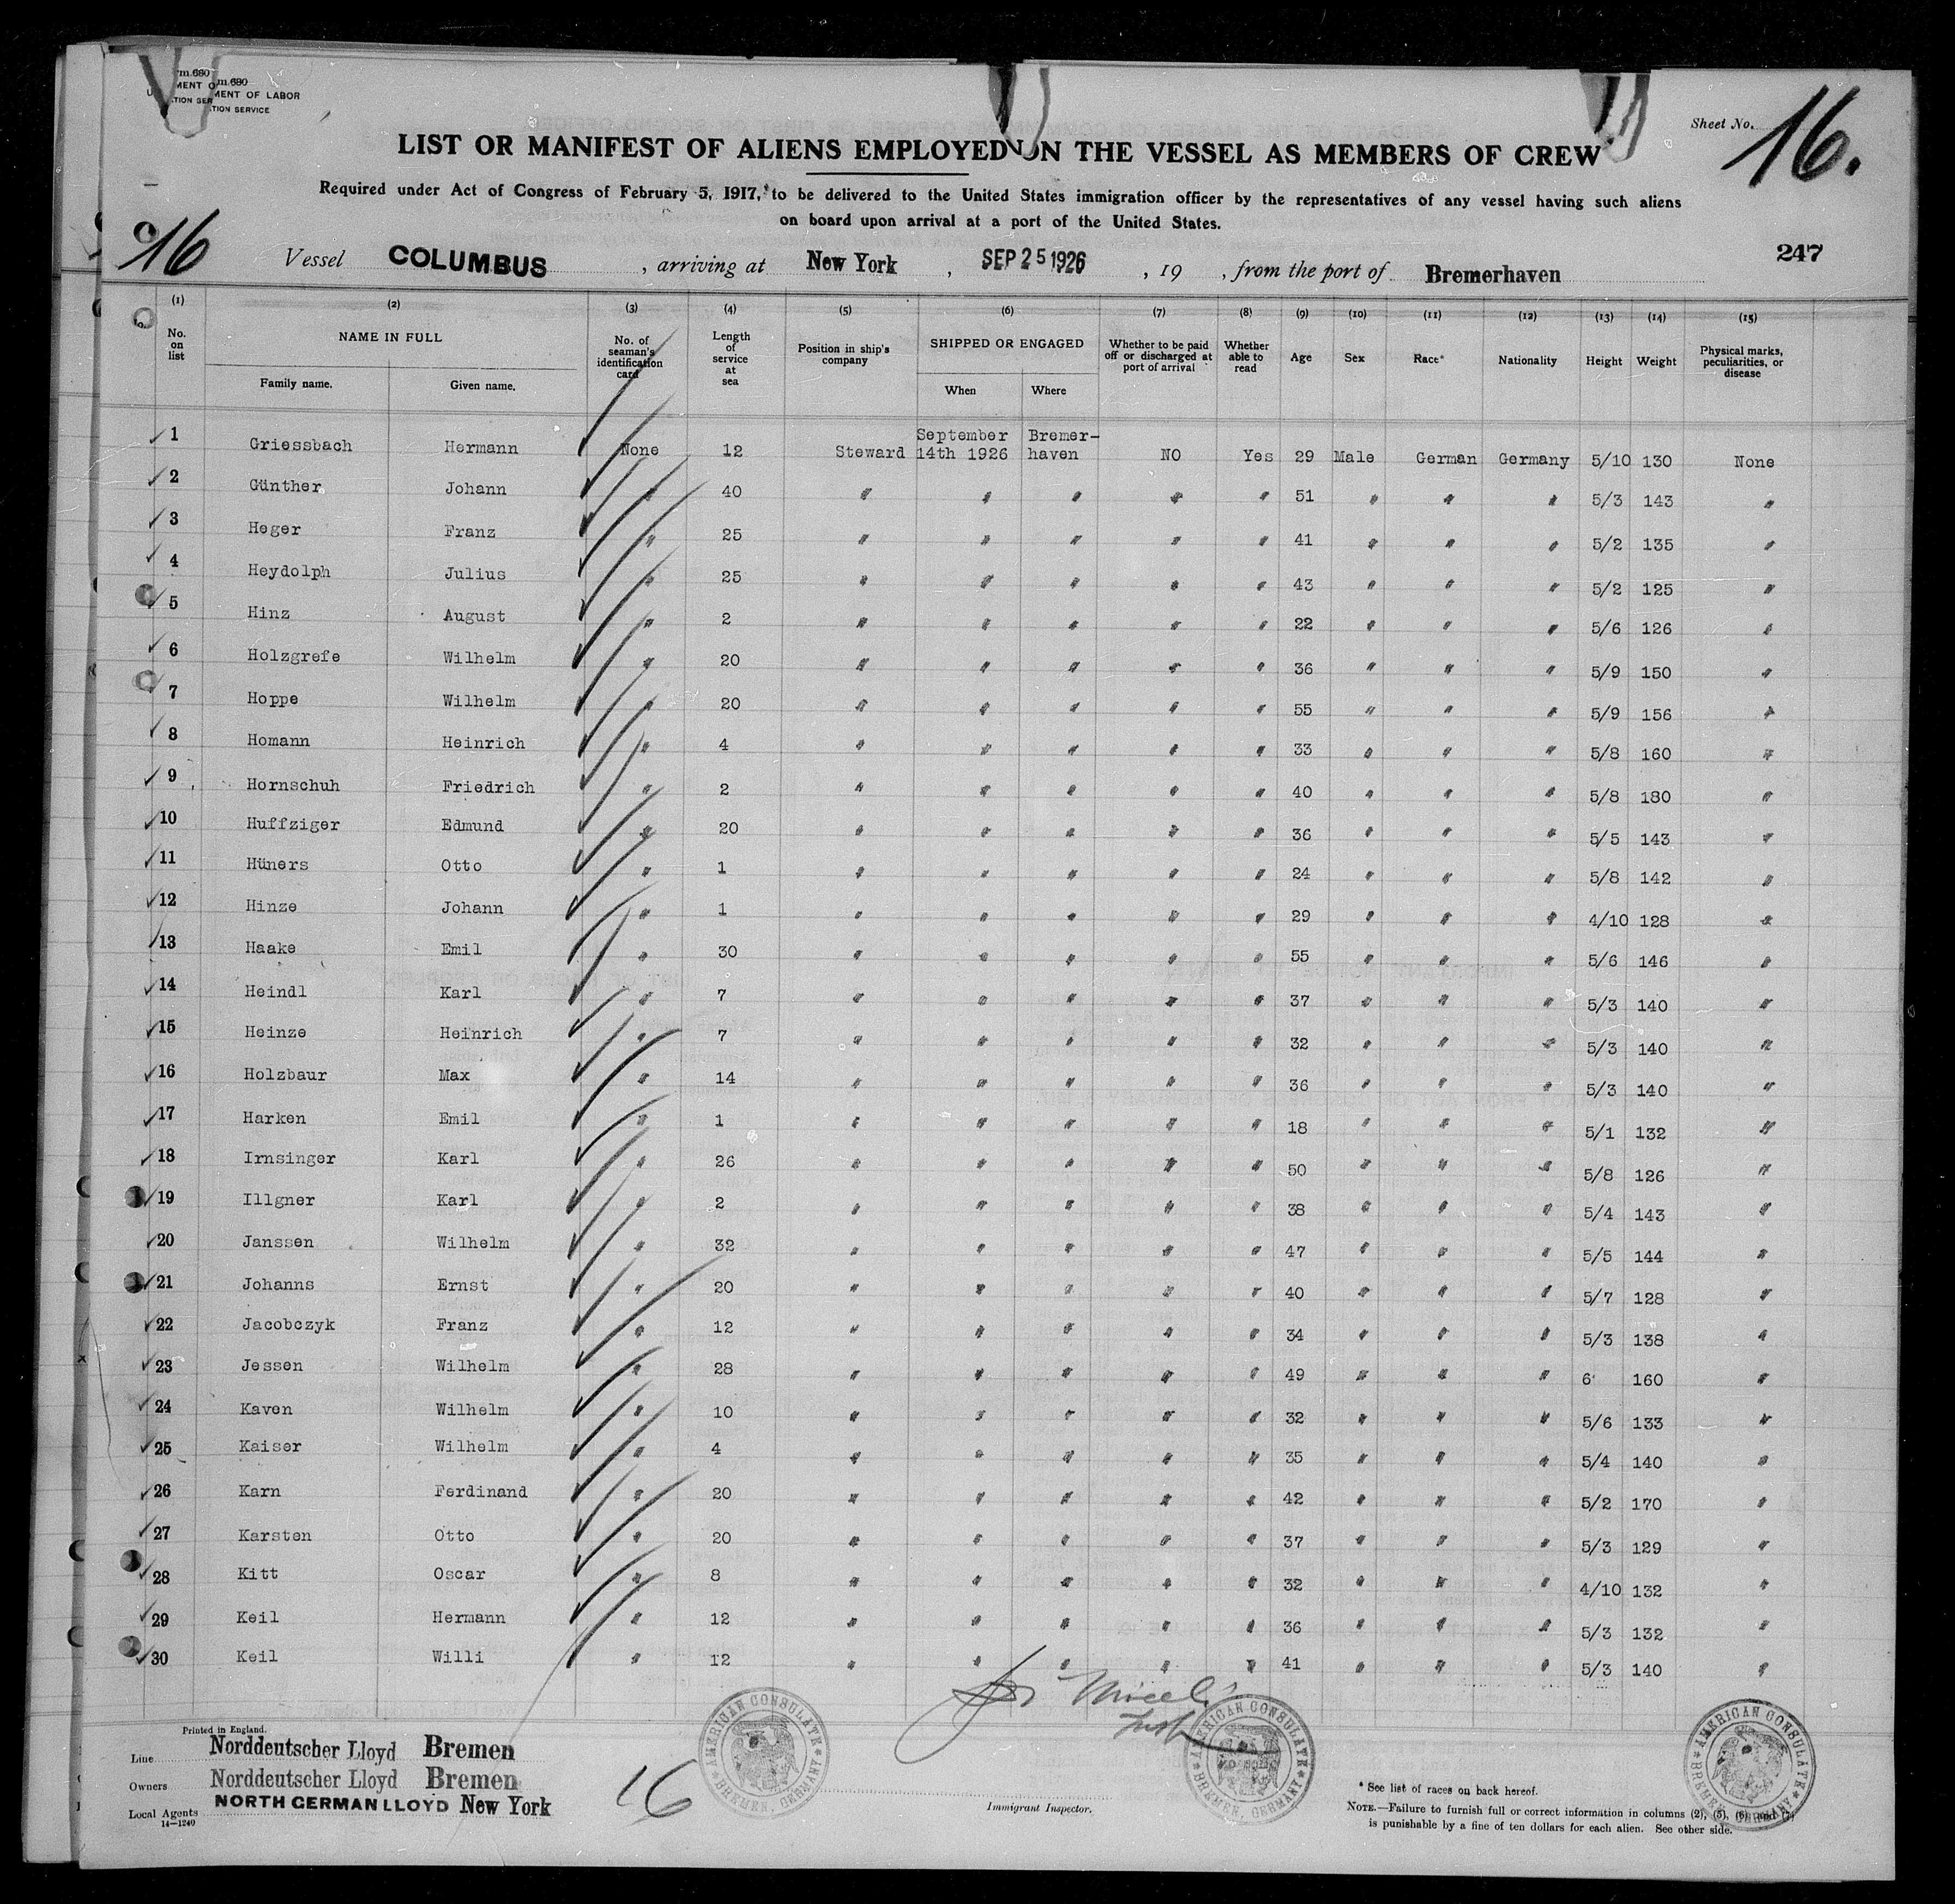 m.680
m.680
MENT OF LABOR
TION SERVICE
Sheet No. 16.
LIST OR MANIFEST OF ALIENS EMPLOYED ON THE VESSEL AS MEMBERS OF CREW
Required under Act of Congress of February 5, 1917, to be delivered to the United States immigration officer by the representatives of any vessel having such aliens
on board upon arrival at a port of the United States.
16
247
Vessel COLUMBUS, arriving at New York, SEP 25 1926, 19 , from the port of Bremerhaven
(1) (2) (3) (4) (5) (6) (7) (8) (9) (10) (11) (12) (13) (14) (15)
No. on list NAME IN FULL No. of seaman's identification card Length of service at sea Position in ship's company SHIPPED OR ENGAGED Whether to be paid off or discharged at port of arrival Whether able to read Age Sex Race* Nationality Height Weight Physical marks, peculiarities, or disease
Family name. Given name. When Where
1 Griessbach Hermann None 12 Steward September 14th 1926 Bremer-haven NO Yes 29 Male German Germany 5/10 130 None
2 Günther Johann " 40 " " " " " 51 " " " 5/3 143 "
3 Heger Franz " 25 " " " " " 41 " " " 5/2 135 "
4 Heydolph Julius " 25 " " " " " 43 " " " 5/2 125 "
5 Hinz August " 2 " " " " " 22 " " " 5/6 126 "
6 Holzgrefe Wilhelm " 20 " " " " " 36 " " " 5/9 150 "
7 Hoppe Wilhelm " 20 " " " " " 55 " " " 5/9 156 "
8 Homann Heinrich " 4 " " " " " 33 " " " 5/8 160 "
9 Hornschuh Friedrich " 2 " " " " " 40 " " " 5/8 180 "
10 Huffziger Edmund " 20 " " " " " 36 " " " 5/5 143 "
11 Hüners Otto " 1 " " " " " 24 " " " 5/8 142 "
12 Hinze Johann " 1 " " " " " 29 " " " 4/10 128 "
13 Haake Emil " 30 " " " " " 55 " " " 5/6 146 "
14 Heindl Karl " 7 " " " " " 37 " " " 5/3 140 "
15 Heinze Heinrich " 7 " " " " " 32 " " " 5/3 140 "
16 Holzbaur Max " 14 " " " " " 36 " " " 5/3 140 "
17 Harken Emil " 1 " " " " " 18 " " " 5/1 132 "
18 Irnsinger Karl " 26 " " " " " 50 " " " 5/8 126 "
19 Illgner Karl " 2 " " " " " 38 " " " 5/4 143 "
20 Janssen Wilhelm " 32 " " " " " 47 " " " 5/5 144 "
21 Johanns Ernst " 20 " " " " " 40 " " " 5/7 128 "
22 Jacobczyk Franz " 12 " " " " " 34 " " " 5/3 138 "
23 Jessen Wilhelm " 28 " " " " " 49 " " " 6' 160 "
24 Kaven Wilhelm " 10 " " " " " 32 " " " 5/6 133 "
25 Kaiser Wilhelm " 4 " " " " " 35 " " " 5/4 140 "
26 Karn Ferdinand " 20 " " " " " 42 " " " 5/2 170 "
27 Karsten Otto " 20 " " " " " 37 " " " 5/3 129 "
28 Kitt Oscar " 8 " " " " " 32 " " " 4/10 132 "
29 Keil Hermann " 12 " " " " " 36 " " " 5/3 132 "
30 Keil Willi " 12 " " " " " 41 " " " 5/3 140 "
Printed in England.
Line Norddeutscher Lloyd Bremen
Owners Norddeutscher Lloyd Bremen
Local Agents NORTH GERMAN LLOYD New York
14—1240
16
AMERICAN CONSULATE BREMEN, GERMANY
AMERICAN CONSULATE BREMEN, GERMANY
AMERICAN CONSULATE BREMEN, GERMANY
Immigrant Inspector.
* See list of races on back hereof.
NOTE.—Failure to furnish full or correct information in columns (2), (5), (6), and (7)
is punishable by a fine of ten dollars for each alien. See other side.